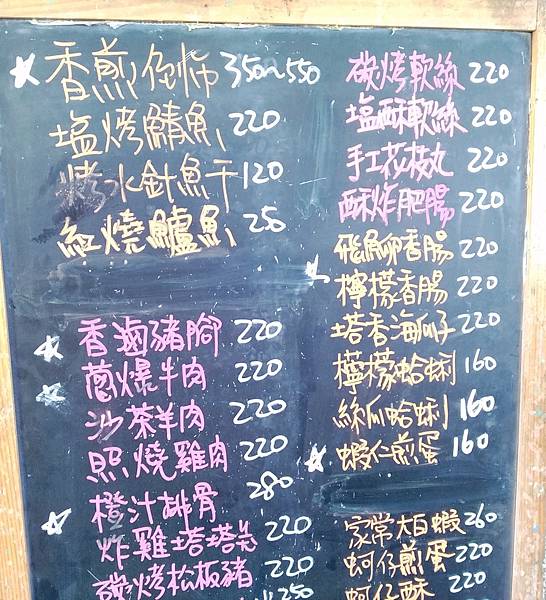 香煎倒吊 350~550
塩烤鯖魚 220
烤水針魚干 120
紅燒鱸魚 250
香滷豬腳 220
蔥爆牛肉 220
沙茶羊肉 220
照燒雞肉 220
橙汁排骨 280
炸雞塔塔 220
碳烤松板豬 250
碳烤軟絲 220
塩酥軟絲 220
手工花枝丸 220
酥炸肥腸 220
飛魚卵香腸 220
檸檬香腸 220
塔香海瓜子 220
檸檬蛤蜊 160
絲瓜蛤蜊 160
蝦仁煎蛋 160
家常大白蝦 260
蚵仔煎蛋 220
蚵仔酥 220